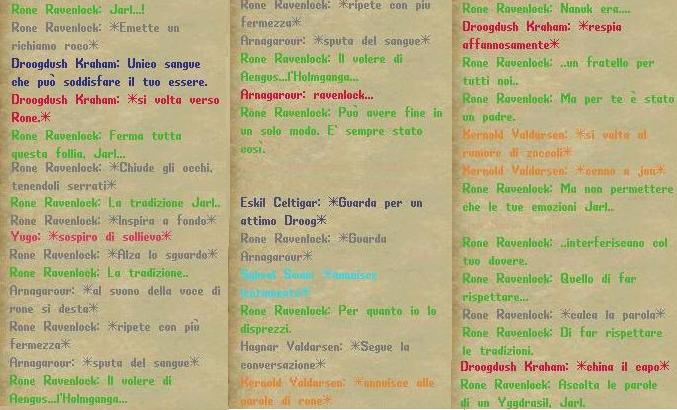 Rone Ravenlock: Jarl...!
Rone Ravenlock: *Emette un
richiamo roco*
Droogdush Kraham: Unico sangue
che può soddisfare il tuo essere.
Droogdush Kraham: *si volta verso
Rone.*
Rone Ravenlock: Ferma tutta
questa follia, Jarl...
Rone Ravenlock: *Chiude gli occhi,
tenendoli serrati*
Rone Ravenlock: La tradizione Jarl..
Rone Ravenlock: *Inspira a fondo*
Yugo: *sospiro di sollievo*
Rone Ravenlock: *Alza lo sguardo*
Rone Ravenlock: La tradizione..
Arnagarour: *al suono della voce di
rone si desta*
Rone Ravenlock: *ripete con più
fermezza*
Arnagarour: *sputa del sangue*
Rone Ravenlock: Il volere di
Aengus...l'Holmganga...
Rone Ravenlock: *ripete con più
fermezza*
Arnagarour: *sputa del sangue*
Rone Ravenlock: Il volere di
Aengus...l'Holmganga...
Arnagarour: ravenlock...
Rone Ravenlock: Può avere fine in
un solo modo. E' sempre stato
così.
Eskil Celtigar: *Guarda per un
attimo Droog*
Rone Ravenlock: *Guarda
Arnagarour*
*annuisce
lentamente*
Rone Ravenlock: Per quanto io lo
disprezzi.
Hagnar Valdarsen: *Segue la
conversazione*
Kernold Valdarsen: *annuisce alle
parole di rone*
Rone Ravenlock: Nanuk era....
Droogdush Kraham: *respia
affannosamente*
Rone Ravenlock: ..un fratello per
tutti noi..
Rone Ravenlock: Ma per te è stato
un padre.
Kernold Valdarsen: *si volta al
rumore di zoccoli*
Kernold Valdarsen: *cenno a jon*
Rone Ravenlock: Ma non permettere
che le tue emozioni Jarl..
Rone Ravenlock: ..interferiscano col
tuo dovere.
Rone Ravenlock: Quello di far
rispettare...
Rone Ravenlock: *calca la parola*
Rone Ravenlock: Di far rispettare
le tradizioni.
Droogdush Kraham: *china il capo*
Rone Ravenlock: Ascolta le parole
di un Yggdrasil, Jarl.